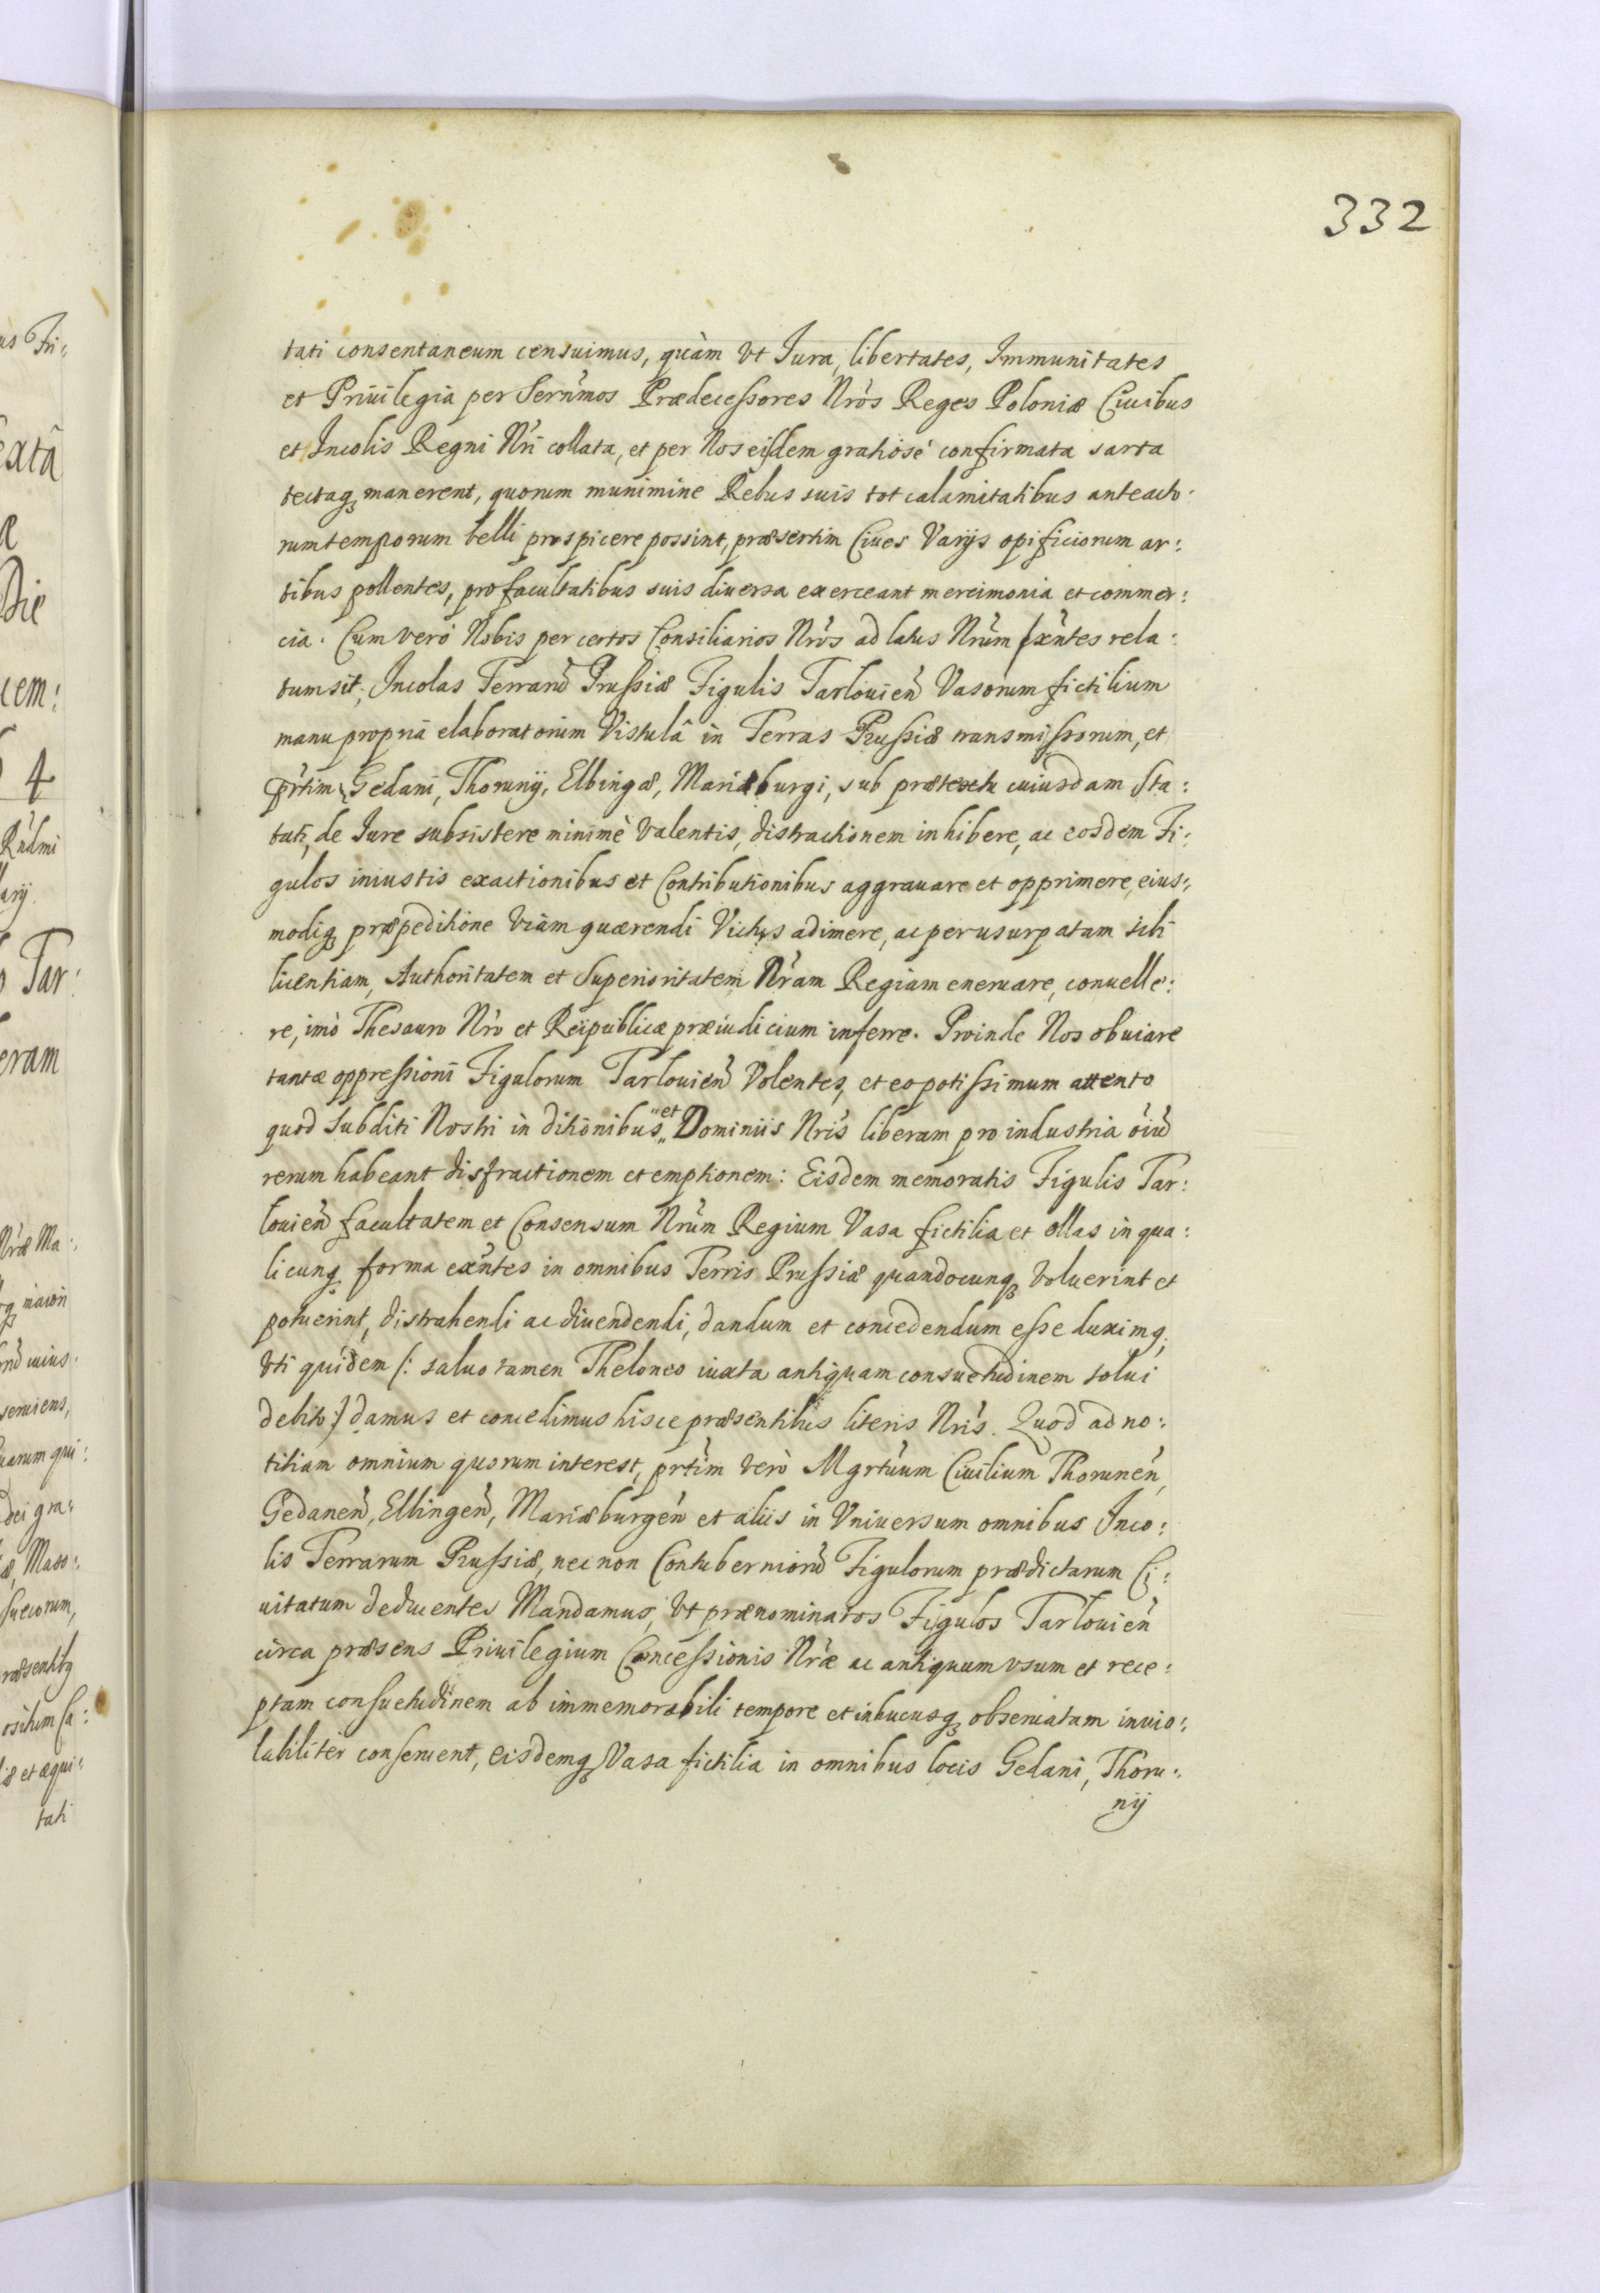 332
tati consentaneum censuimus, quàm Vt Jura, libertates, Immunitates
et Priuilegia per Sernmos Prædecessores Nros Reges Poloniæ Ciuibus
et Incolis Regni Nri collata, et per Nos eisdem gratiosè confirmata sarta
tectaq manerent, quorum munimine Rebus suis tot calamitatibus anteacto:
rum temporum belli prospicere possint, præsertim Ciues Varijs opificiorum ar:
tibus pollentes, pro facultatibus suis diuersa exerceant mercimonia et commer:
cia. Cum verò Nobis per certos Consiliarios Nros ad latus Nrum exntes rela:
tum sit, Incolas Terraru Prussiæ Figulis Tarlouien Vasorum fictilium
manu propriâ elaboratorum Vistulâ in Terras Prussiæ transmissorum, et
prtim Gedani, Thorunij, Elbingæ, Mariæburgi, sub prætextu cuiusdam Sta:
tuti, de Jure subsistere minimè Valentis, distractionem inhibere, ac eosdem Fi:
gulos iniustis exactionibus et Contributionibus aggrauare et opprimere, eius:
modiq præpeditione Viam quærendi Victus adimere, ac per usurpatam sibi
licentiam, Authoritatem et Superioritatem Nram Regiam eneruare, conuelle:
re, imò Thesauro Nro et Reipublicæ præiudicium inferre. Proinde Nos obuiare
tantæ oppressioni Figulorum Tarlouien Volentes, et eo potissimum attento
quod Subditi Nostri in ditionibus et Dominiis Nris liberam pro industria oiu
rerum habeant distractionem et emptionem: Eisdem memoratis Figulis Tar:
louien facultatem et Consensum Nrum Regium Vasa fictilia et ollas in qua:
licunq forma exntes in omnibus Terris Prussiæ quandocunq Voluerint et
potuerint, distrahendi ac diuendendi, dandum et concedendum esse duximq,
Vti quidem /: saluo tamen Theloneo iuxta antiquam consuetudinem solui
debito :/ damus et concedimus hisce præsentibus literis Nris. Quod ad no:
titiam omnium quorum interest, prtim verò Mgrtuum Ciuilium Thorunen,
Gedanen, Elbingen, Mariæburgen et aliis in Vniuersum omnibus Inco:
lis Terrarum Prussiæ, nec non Contubernioru Figulorum prædictarum Ci:
uitatum deducentes Mandamus, Vt prænominatos Figulos Tarlouien
circa præsens Priuilegium Concessionis Nræ ac antiquum vsum et rece:
ptam consuetudinem ab immemorabili tempore et inhucusq obseruatam inuio:
labiliter conseruent, eisdemq Vasa fictilia in omnibus locis Gedani, Thoru:
nij